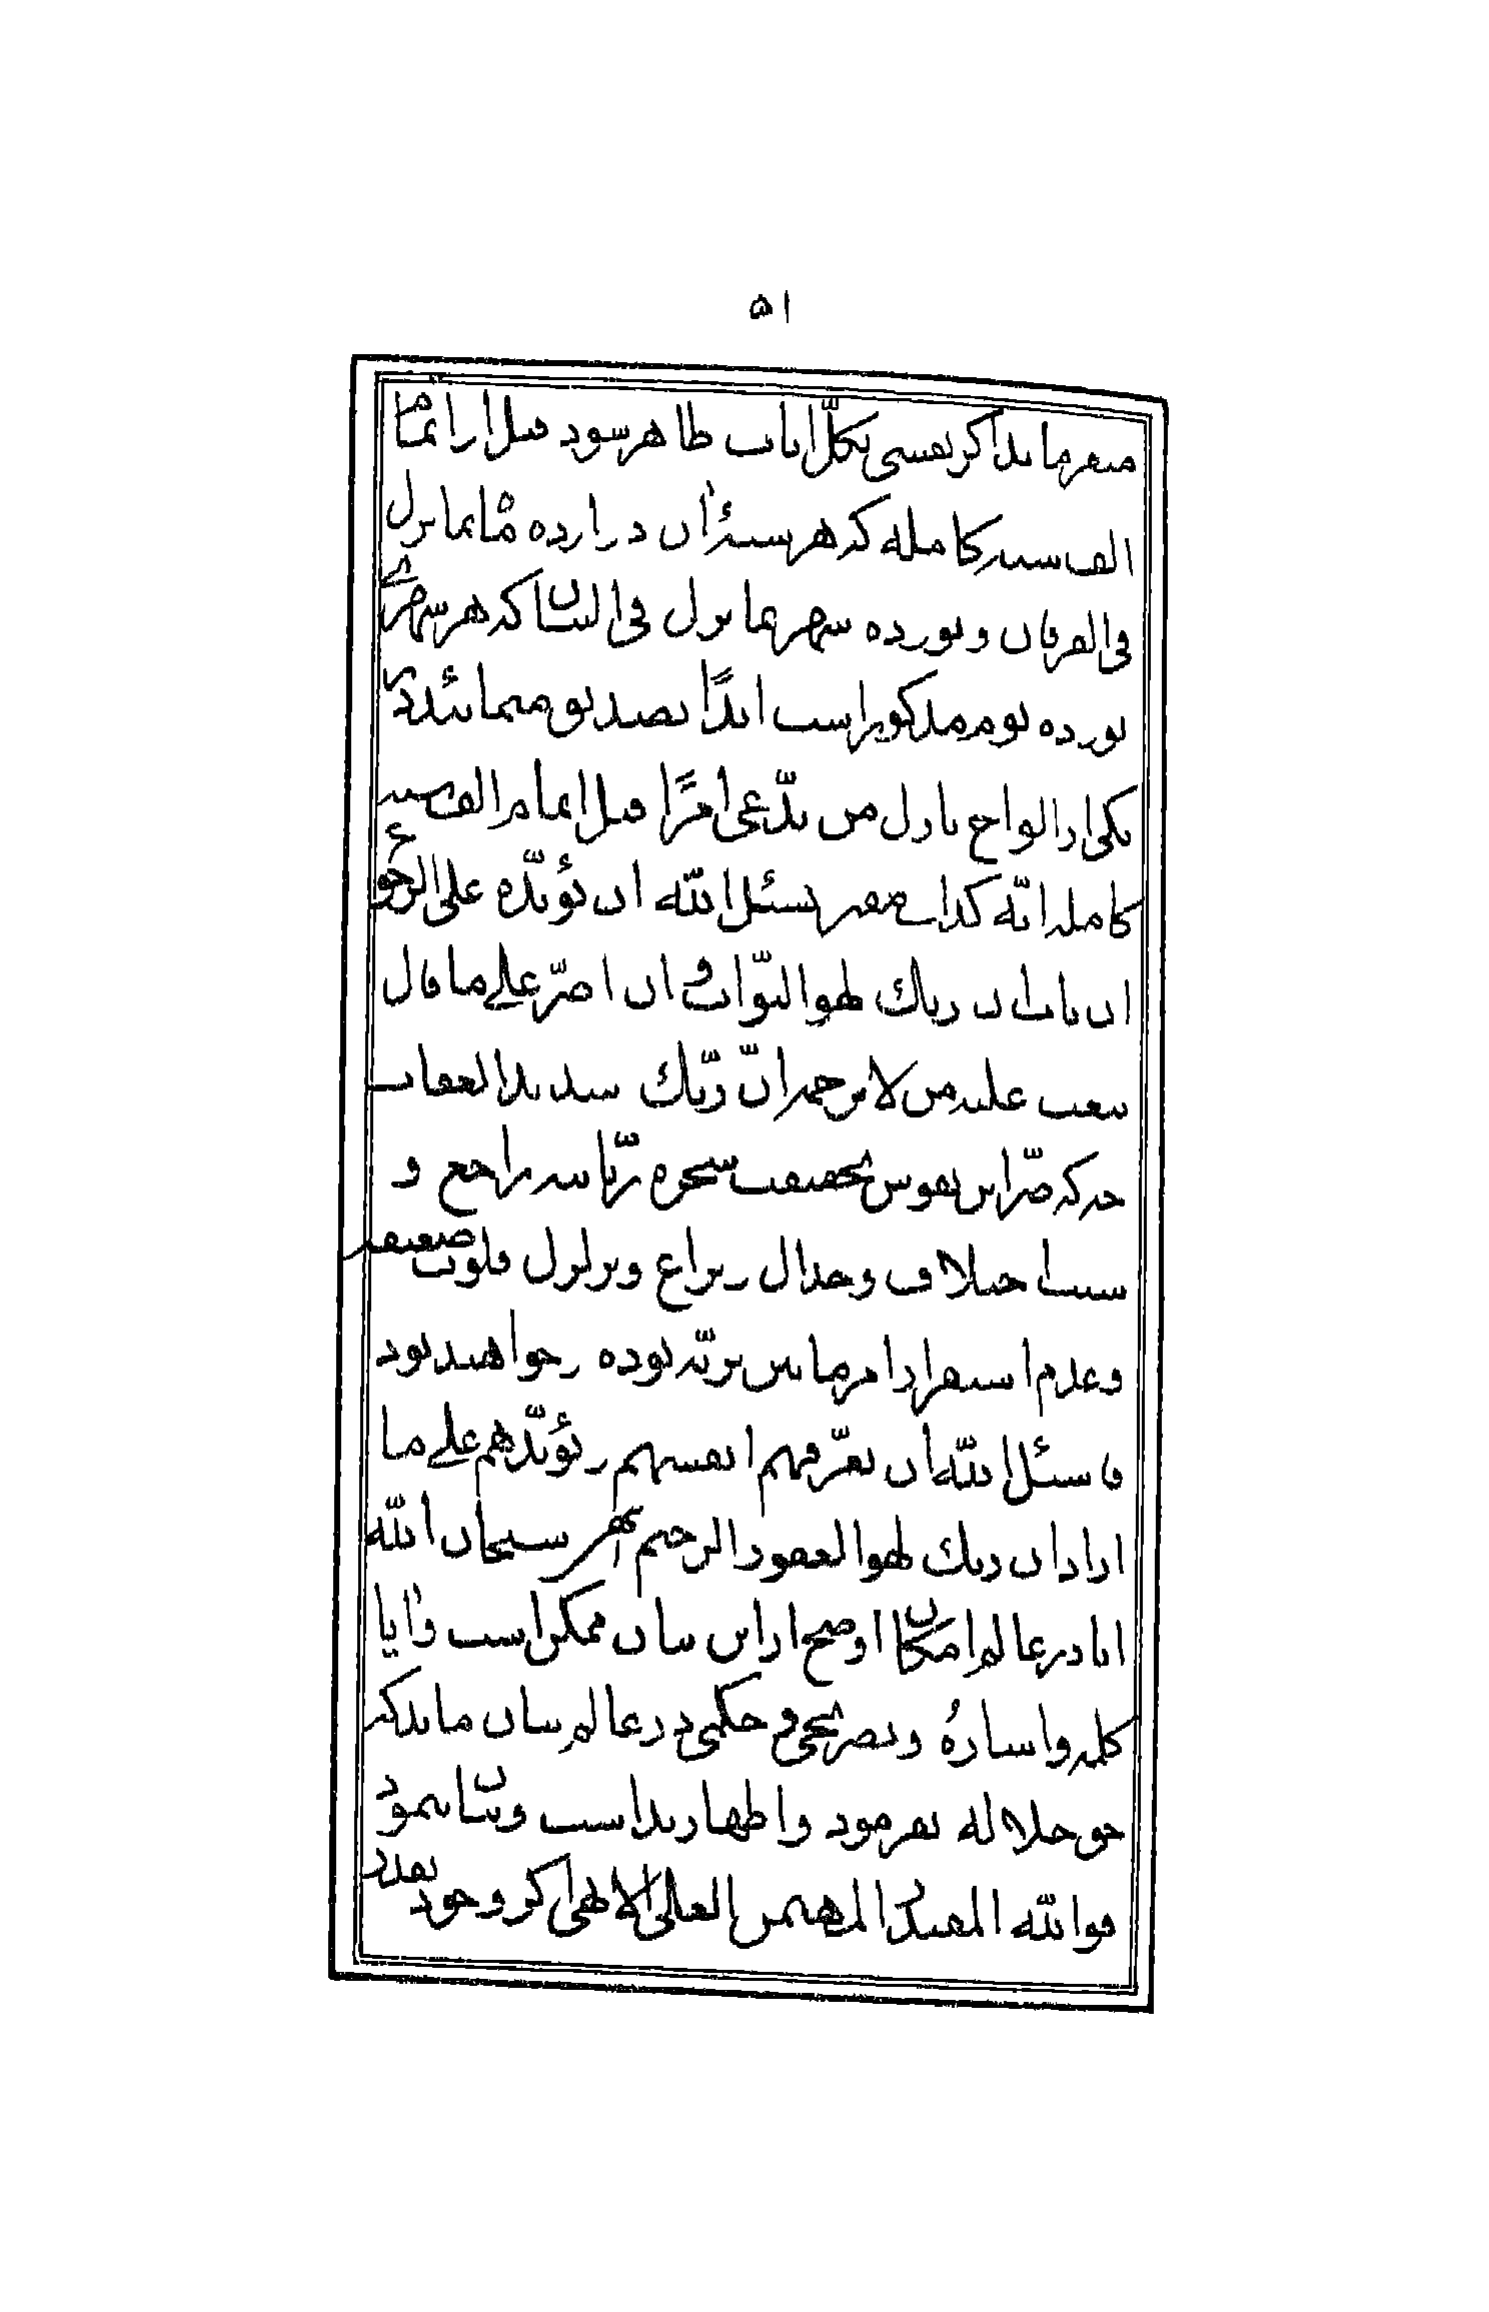 ۵۱
میفرماید اگر نفسی بکلّ ایات ظاهر شود قبل از اتمام
الف سنه کامله که هر سنهٔ آن دوازده ماه بما نزل
فی الفرقان و نوزده شهر بما نزل فی البیان که هر شهری
نوزده یوم مذکور است ابدًا تصدیق منمائید در
یکی از الواح نازل من یدّعی امرًا قبل اتمام الف سنه
کامله انّه کذاب مفتر نسئل الله ان یؤیّده علی الرجوع
ان تاب ان ربك لهو التوّاب و ان اصرّ علی ما قال
یبعث علیه من لا یرحمه انّ ربّك شدید العقاب
چه که ضرّ این نفوس بحقیقت شجره ربّانیه راجع و
سبب اختلاف و جدال و نزاع و تزلزل قلوب ضعیفه
و عدم استقرار امر مابین بریّه بوده و خواهند بود
فاسئل الله ان یعرّفهم انفسهم و یؤیّدهم علی ما
اراد ان ربك لهو الغفور الرحیم بگو سبحان الله
ایا در عالم امکان اوضح از این بیان ممکن است و آیا
کلمه و اشارهٔ و تصریحی و حکمی در عالم بیان ماند که
حق جلاله نفرمود و اظهار نداشت و بیان ننمود
فوالله المقتدر المهیمن العلی الابهی اگر وجود بقدر